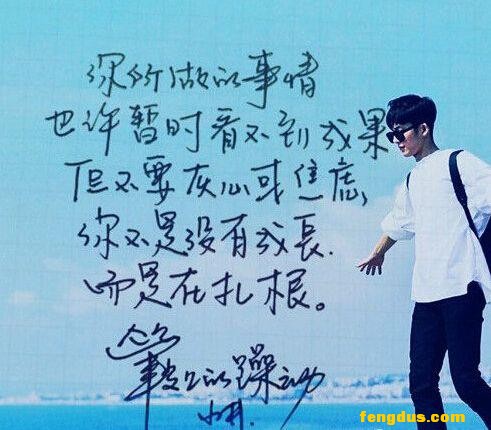 你所做的事情
也许暂时看不到成果
但不要灰心或焦虑,
你不是没有成長.
而是在扎根。
的躁动
fengdus.com